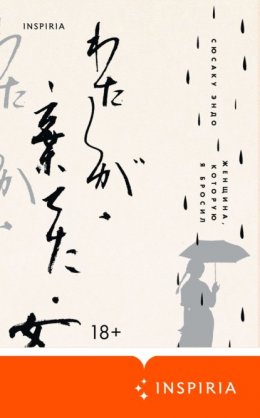 INSPIRIA
わたしが・
棄てた・女
わたしが・
СЮСАКУ ЭНДО
ЖЕНЩИНА,
КОТОРУЮ
Я БРОСИЛ
18+
INSPIRIA